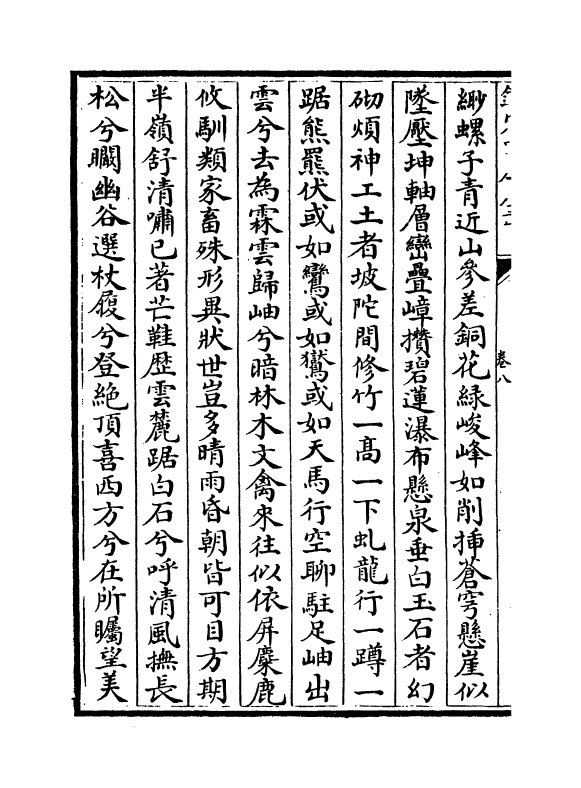 緲螺子青近山參差銅花綠峻峰如削揷蒼穹懸崖似
墜壓坤軸層巒疊嶂攢碧蓮瀑布懸泉垂白玉石者幻
砌煩神工土者坡陀間修竹一髙一下虬龍行一蹲一
踞熊羆伏或如鸞或如鷟或如天馬行空聊駐足岫出
雲兮去為霖雲歸岫兮暗林木文禽來往似依屏麋鹿
攸馴類家畜殊形異狀世豈多晴雨昏朝皆可目方期
半嶺舒清嘯已著芒鞋歴雲麓踞白石兮呼清風撫長
松兮瞰幽谷選杖履兮登絶頂喜西方兮在所矚望美
卷八